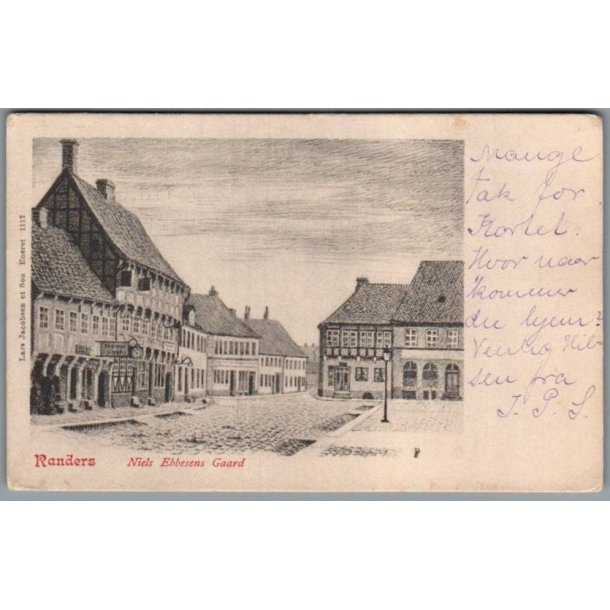 Mange
tak for
Kortet.
Hvor naar
kommer
du hjem?
Venlig Hil-
sen fra
J. P. S.
Lars Jacobsen et Søn Eneret 1117
Randers
Niels Ebbesens Gaard